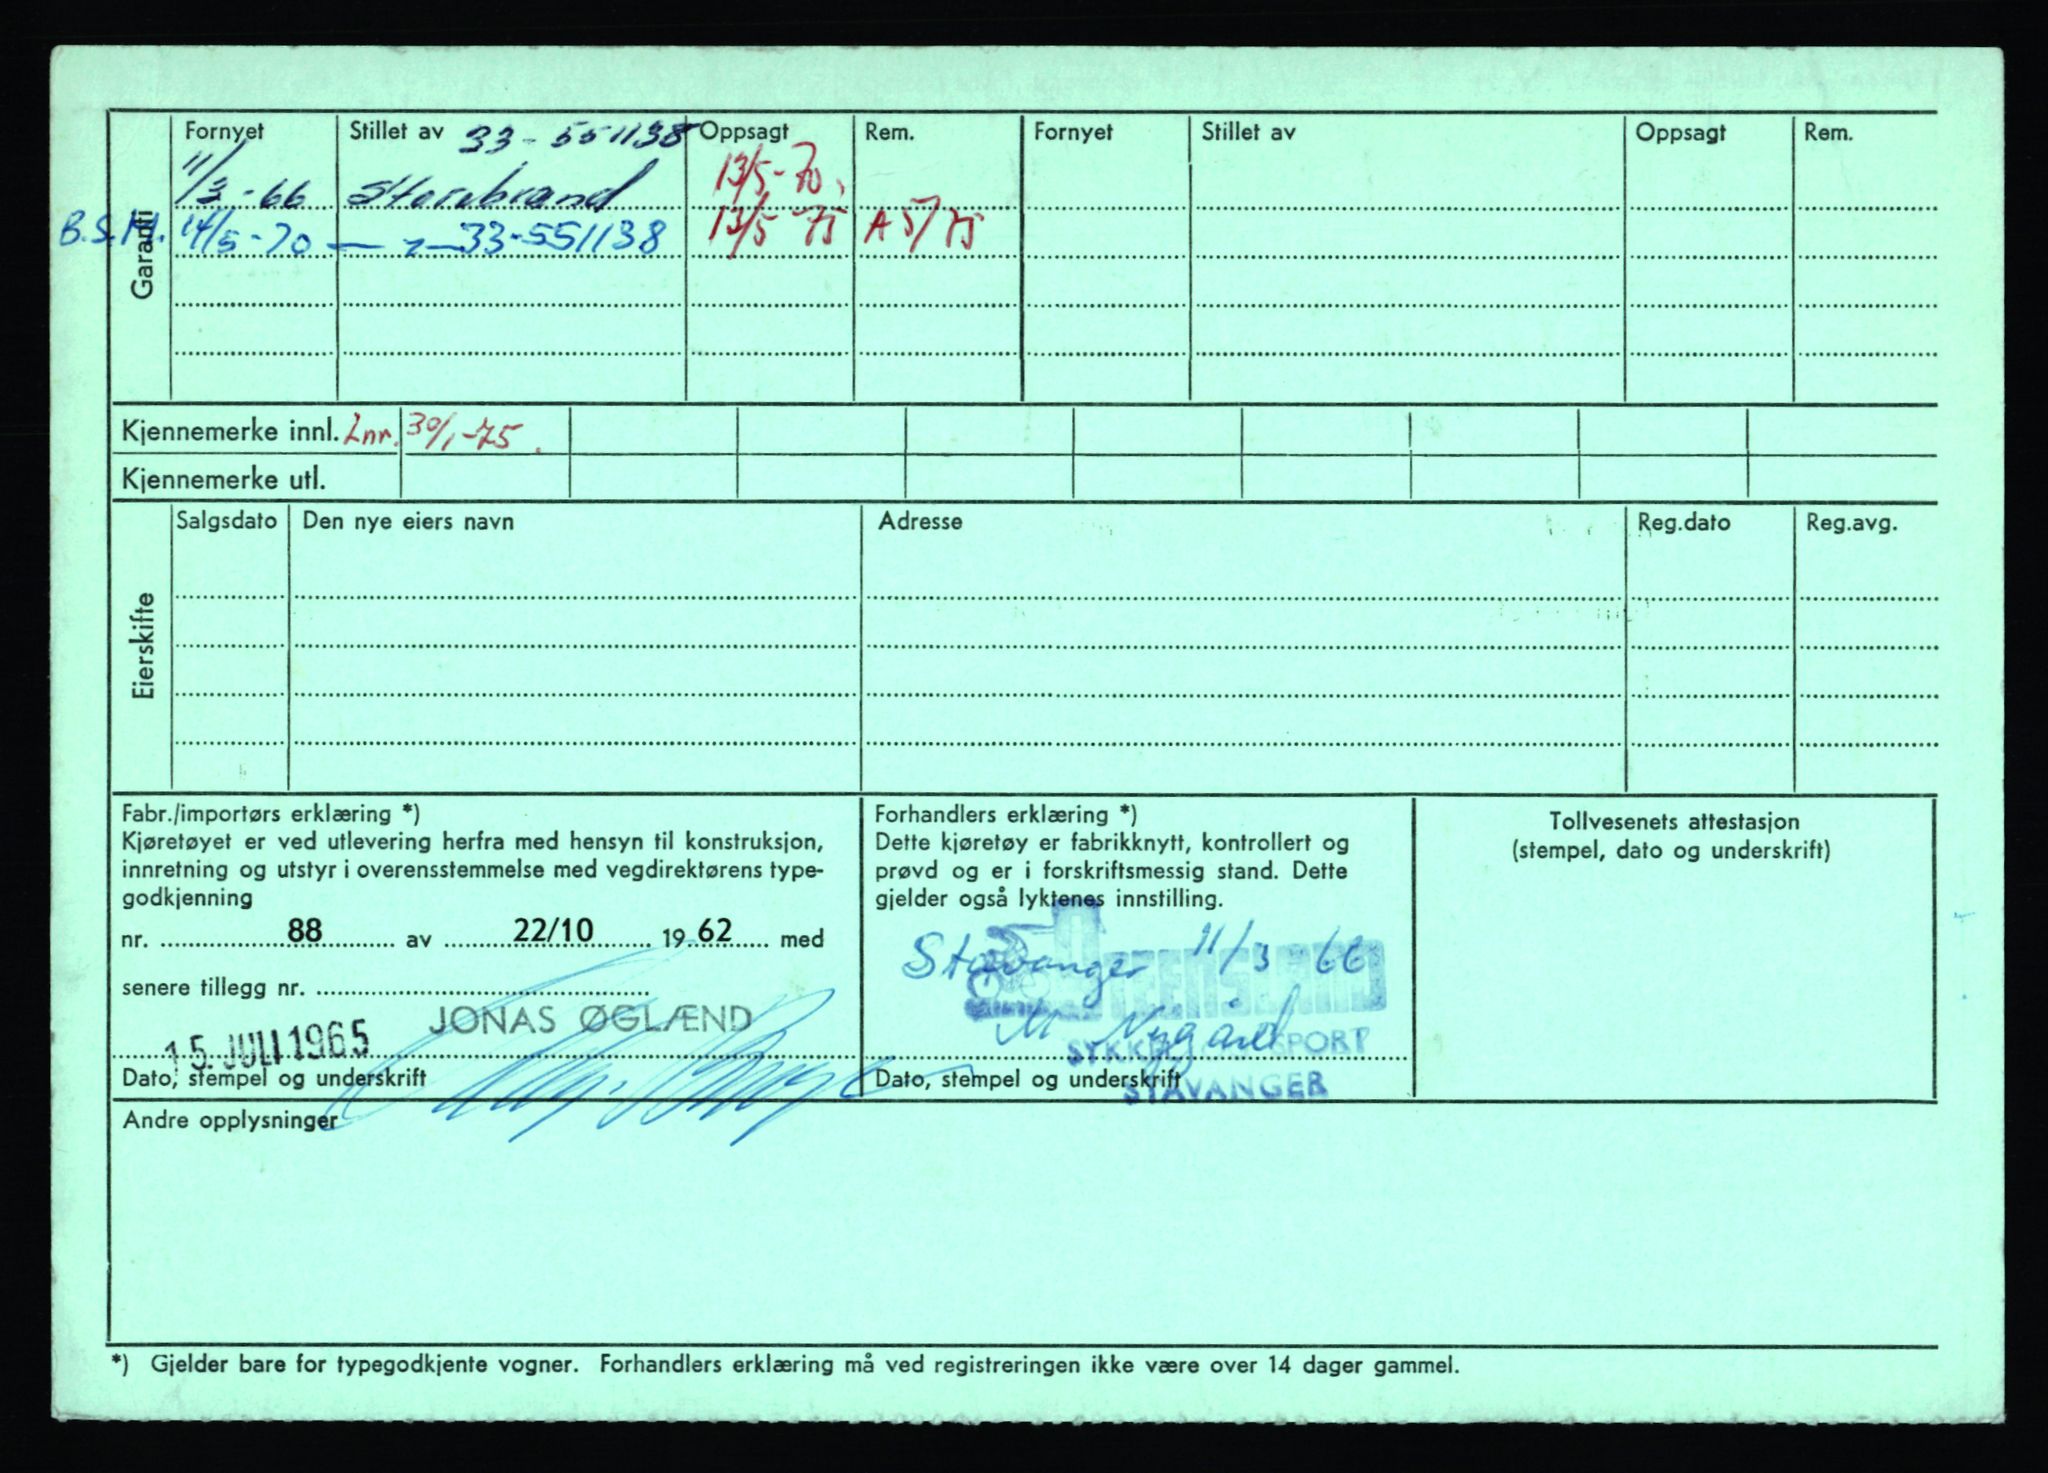 Garanti
Fornyet Stillet av 33-551138 Oppsagt Rem. Fornyet Stillet av Oppsagt Rem.
11/3-66 Storebrand 13/5-70.
B.S.M. 14/5-70 — " — 33-551138 13/5 75 A 5/75
Kjennemerke innl. Inr. 30/1-75.
Kjennemerke utl.
Eierskifte
Salgsdato Den nye eiers navn Adresse Reg.dato Reg.avg.
Fabr./importørs erklæring *)
Kjøretøyet er ved utlevering herfra med hensyn til konstruksjon,
innretning og utstyr i overensstemmelse med vegdirektørens type-
godkjenning
nr. 88 av 22/10 1962 med
senere tillegg nr.
JONAS ØGLÆND
15. JULI 1965
Dato, stempel og underskrift
Forhandlers erklæring *)
Dette kjøretøy er fabrikknytt, kontrollert og
prøvd og er i forskriftsmessig stand. Dette
gjelder også lyktenes innstilling.
Stavanger 11/3-66
M Nygård
SPORT
STAVANGER
Dato, stempel og underskrift
Tollvesenets attestasjon
(stempel, dato og underskrift)
Andre opplysninger
*) Gjelder bare for typegodkjente vogner. Forhandlers erklæring må ved registreringen ikke være over 14 dager gammel.